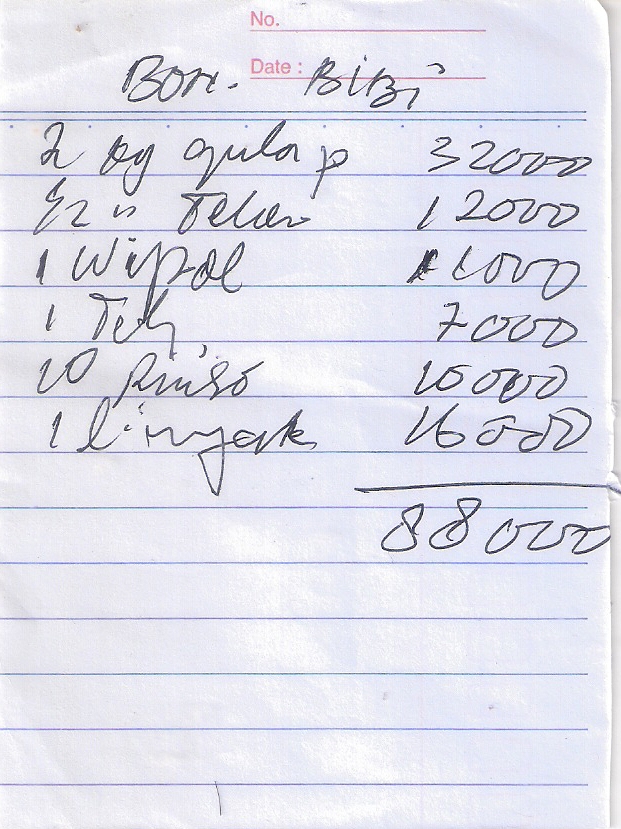 No.
Date :
Bon. Bibi
2 kg gula p 32000
1/2 " Telur 12000
1 Wipol 11000
1 Teh 7000
10 Rinso 10000
1 l minyak 16000
88000